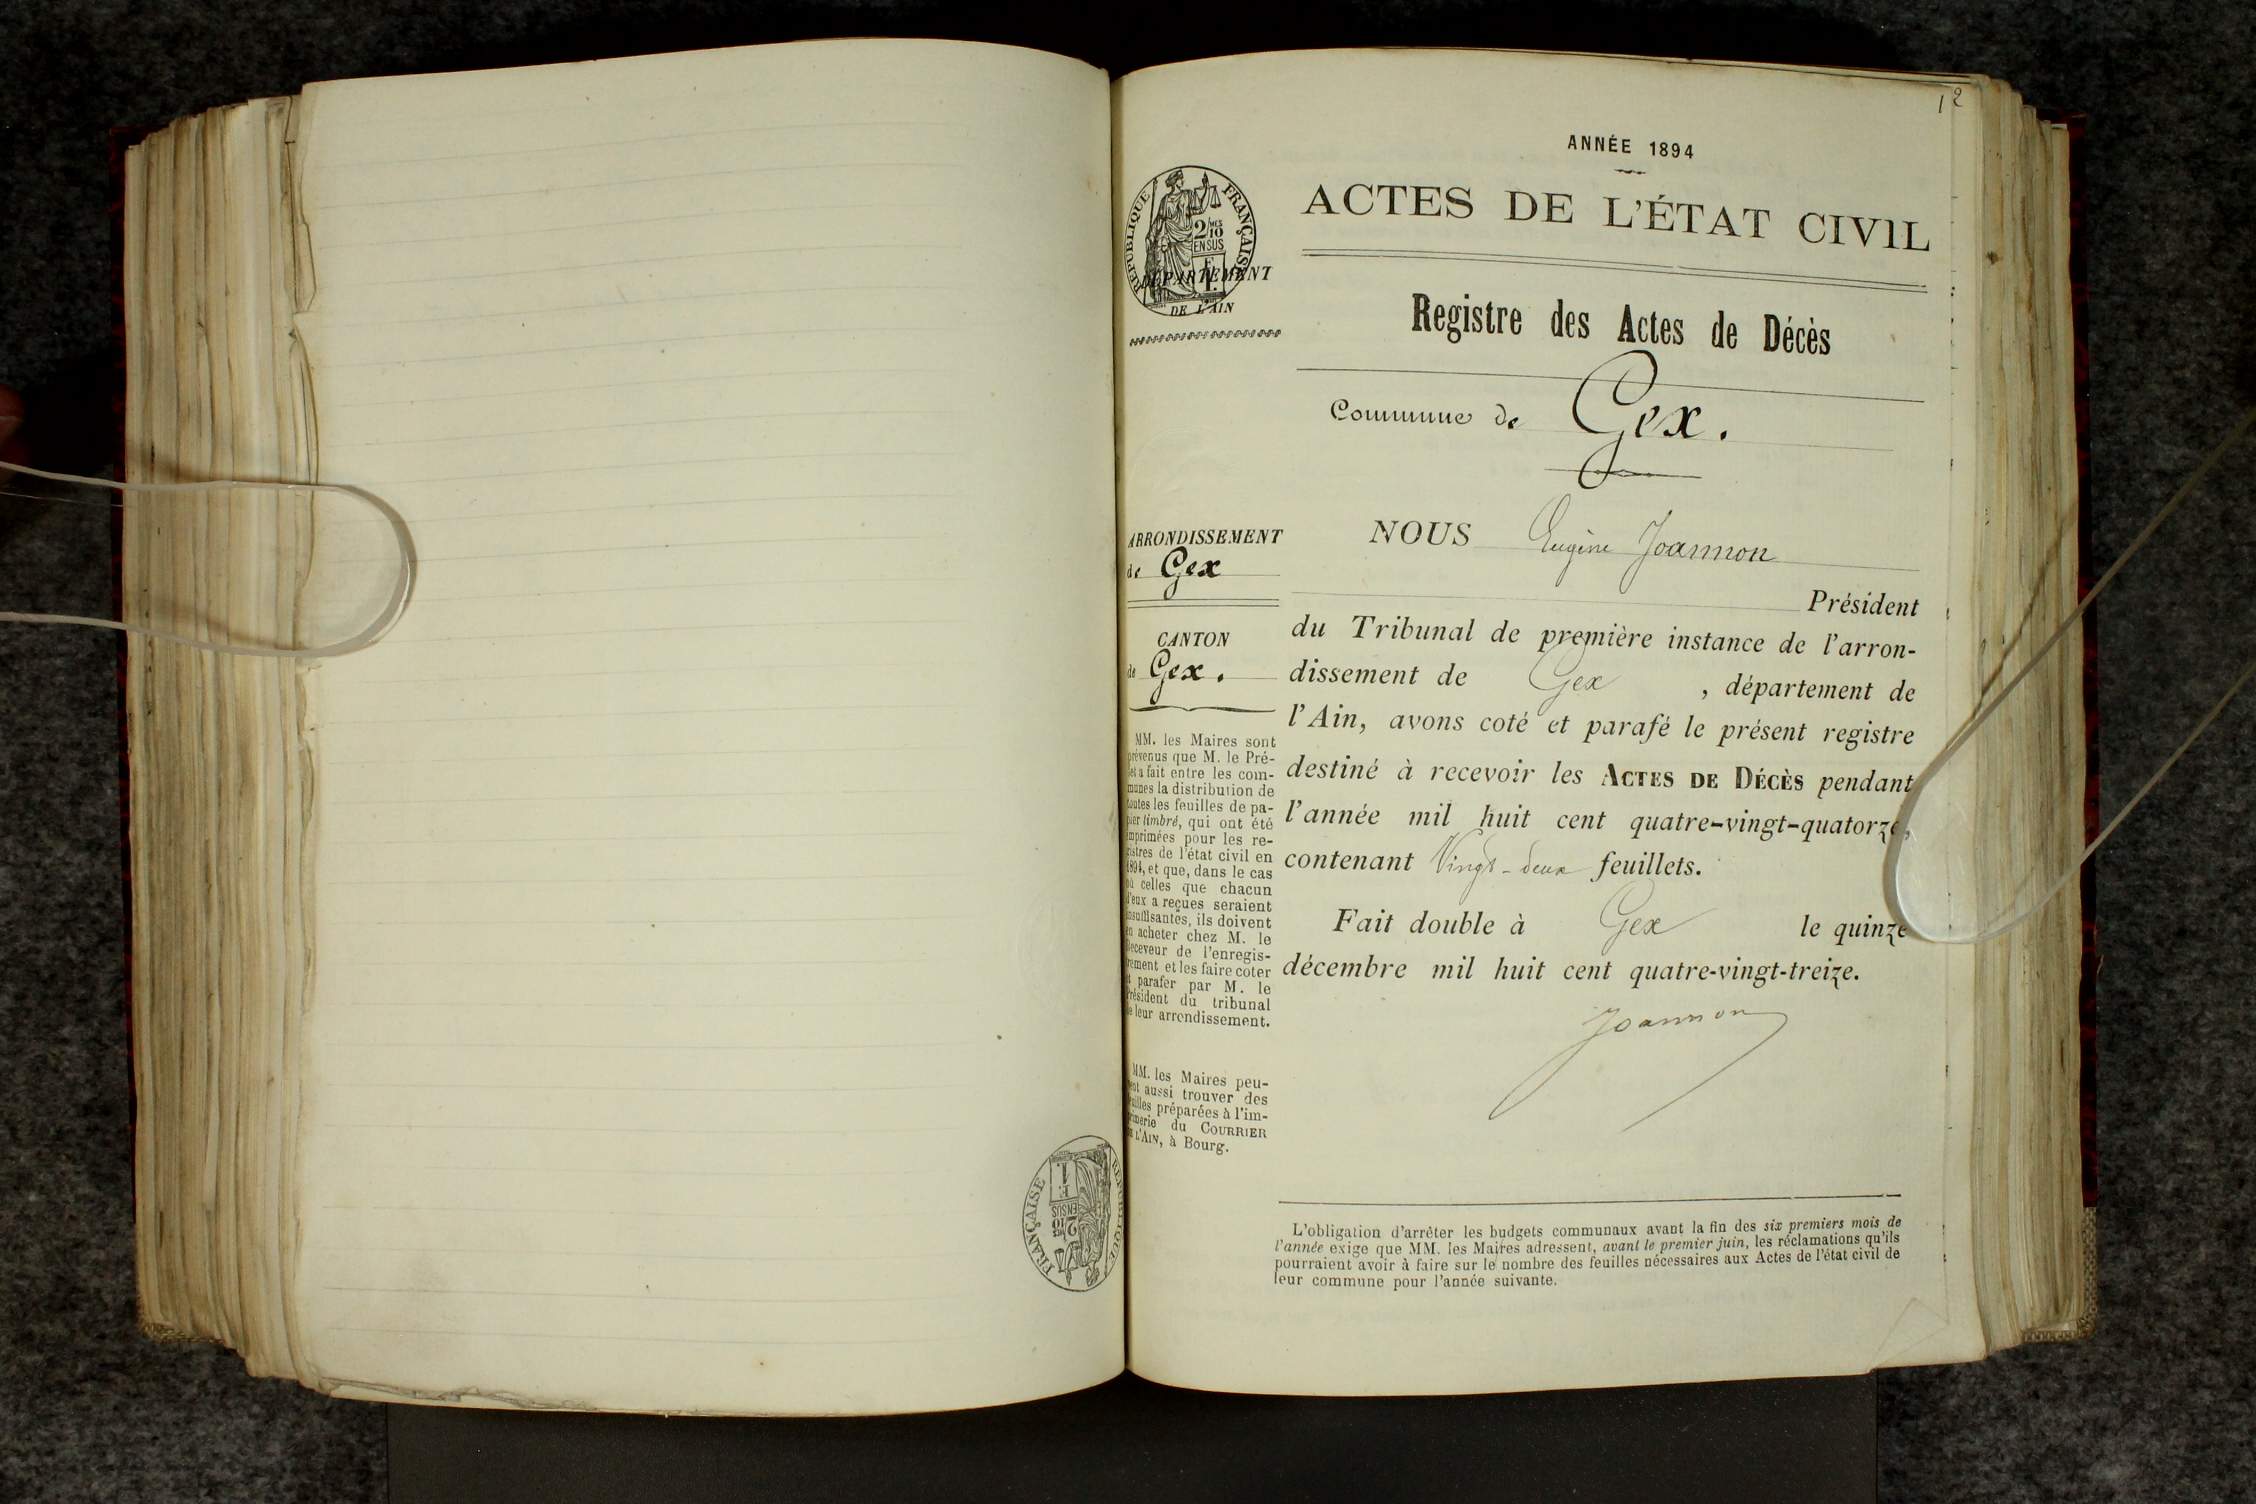 12
ANNÉE 1894
ACTES DE L'ÉTAT CIVIL
RÉPUBLIQUE FRANÇAISE
2/10 MES
EN SUS
DÉPARTEMENT
DE L'AIN
Registre des Actes de Décès
Commune de Gex.
ARRONDISSEMENT
de Gex
CANTON
de Gex.
MM. les Maires sont
prévenus que M. le Pré-
fet a fait entre les com-
munes la distribution de
toutes les feuilles de pa-
pier timbré, qui ont été
imprimées pour les re-
gistres de l'état civil en
1894, et que, dans le cas
où celles que chacun
d'eux a reçues seraient
insuffisantes, ils doivent
en acheter chez M. le
Receveur de l'enregis-
trement et les faire coter
et parafer par M. le
Président du tribunal
de leur arrondissement.
MM. les Maires peu-
vent aussi trouver des
feuilles préparées à l'im-
primerie du COURRIER
DE L'AIN, à Bourg.
NOUS Eugène Joannon
Président
du Tribunal de première instance de l'arron-
dissement de Gex , département de
l'Ain, avons coté et parafé le présent registre
destiné à recevoir les ACTES DE DÉCÈS pendant
l'année mil huit cent quatre-vingt-quatorze,
contenant Vingt-deux feuillets.
Fait double à Gex le quinze
décembre mil huit cent quatre-vingt-treize.
Joannon
L'obligation d'arrêter les budgets communaux avant la fin des six premiers mois de
l'année exige que MM. les Maires adressent, avant le premier juin, les réclamations qu'ils
pourraient avoir à faire sur le nombre des feuilles nécessaires aux Actes de l'état civil de
leur commune pour l'année suivante.
RÉPUBLIQUE FRANÇAISE
1 F.
2/10
EN SUS